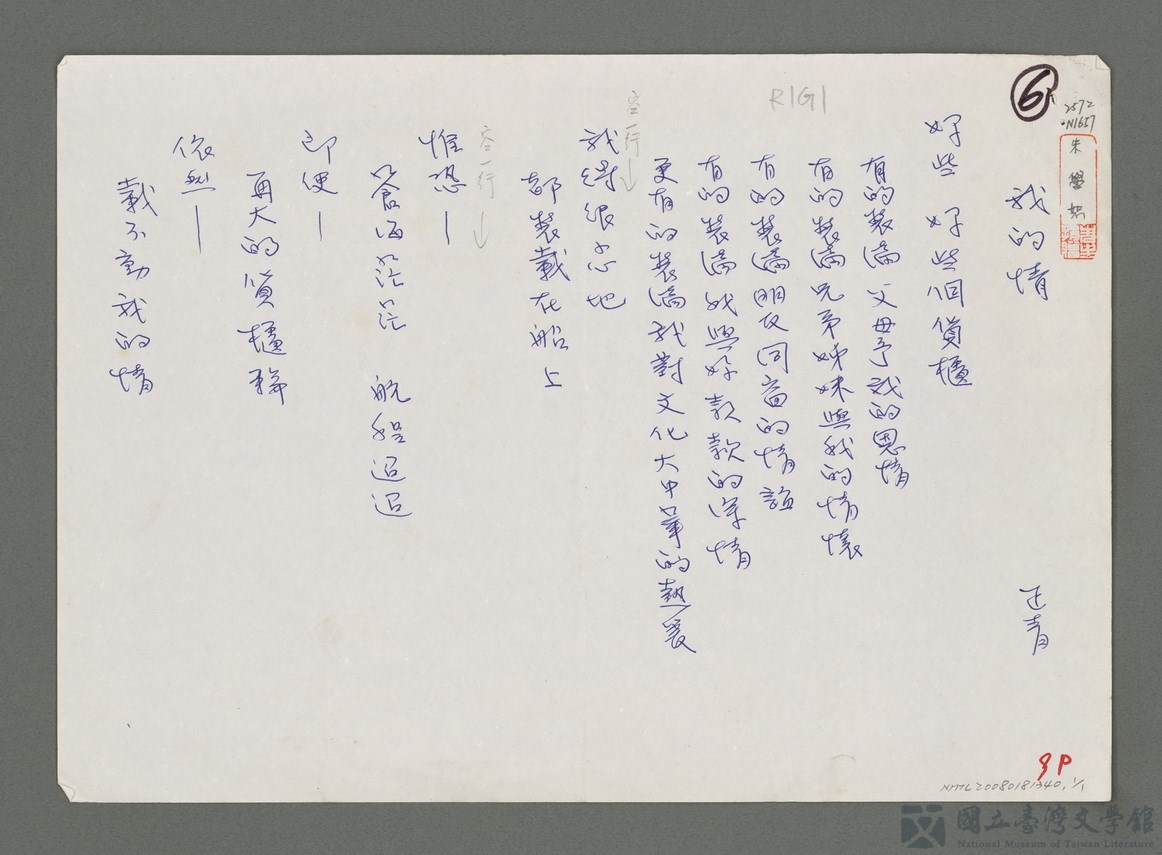 ⑥
2572
N1657
朱學恕
我的情
正青
好些 好些個貨櫃
有的裝滿 父母予我的恩情
有的裝滿 兄弟姊妹與我的情懷
有的裝滿朋友同窗的情誼
有的裝滿 我與妳款款的深情
更有的裝滿我對文化大中華的熱愛
空一行↓
我得很小心地
都裝載在船上
空一行↓
惟恐—
蒼海茫茫 航程迢迢
即使—
再大的貨櫃輪
依然—
載不動我的情
R1G1
9P
NMTL20080181340, 1/1
國立臺灣文學館
National Museum of Taiwan Literature